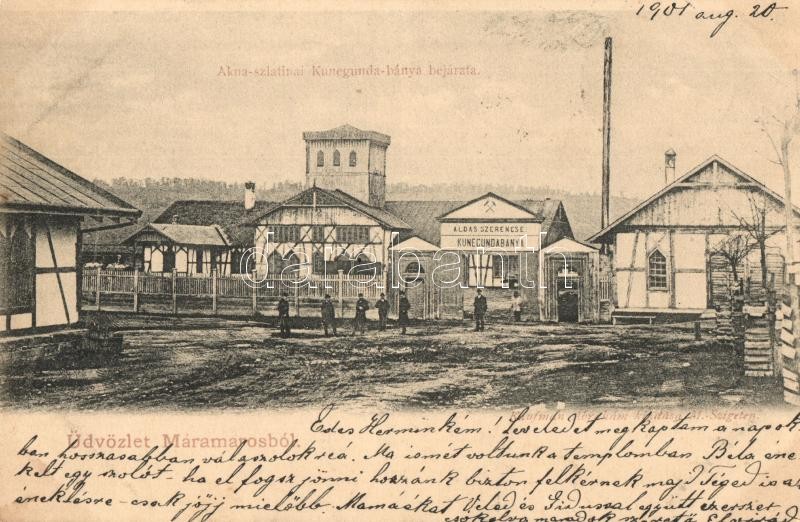 1901 aug. 20.
Akna-szlatinai Kunegunda-bánya bejárata.
ALDÁS SZERENCSE
KUNEGUNDABÁNYA
darabanth
Kaufman Ábrahám kiadása M.-Szigeten.
Üdvözlet Máramarosból.
Édes Herminkém! Leveledet megkaptam a napok
ban hosszasabban válaszolok reá. Ma ismét voltunk a templomban Béla éne
kelt egy szólót - ha el fogsz jönni hozzánk bizton felkérnek majd Téged is az
éneklésre - csak jőjj mielőbb. Mamáékat Veled és együtt ezerszer
csókolva maradok szerető